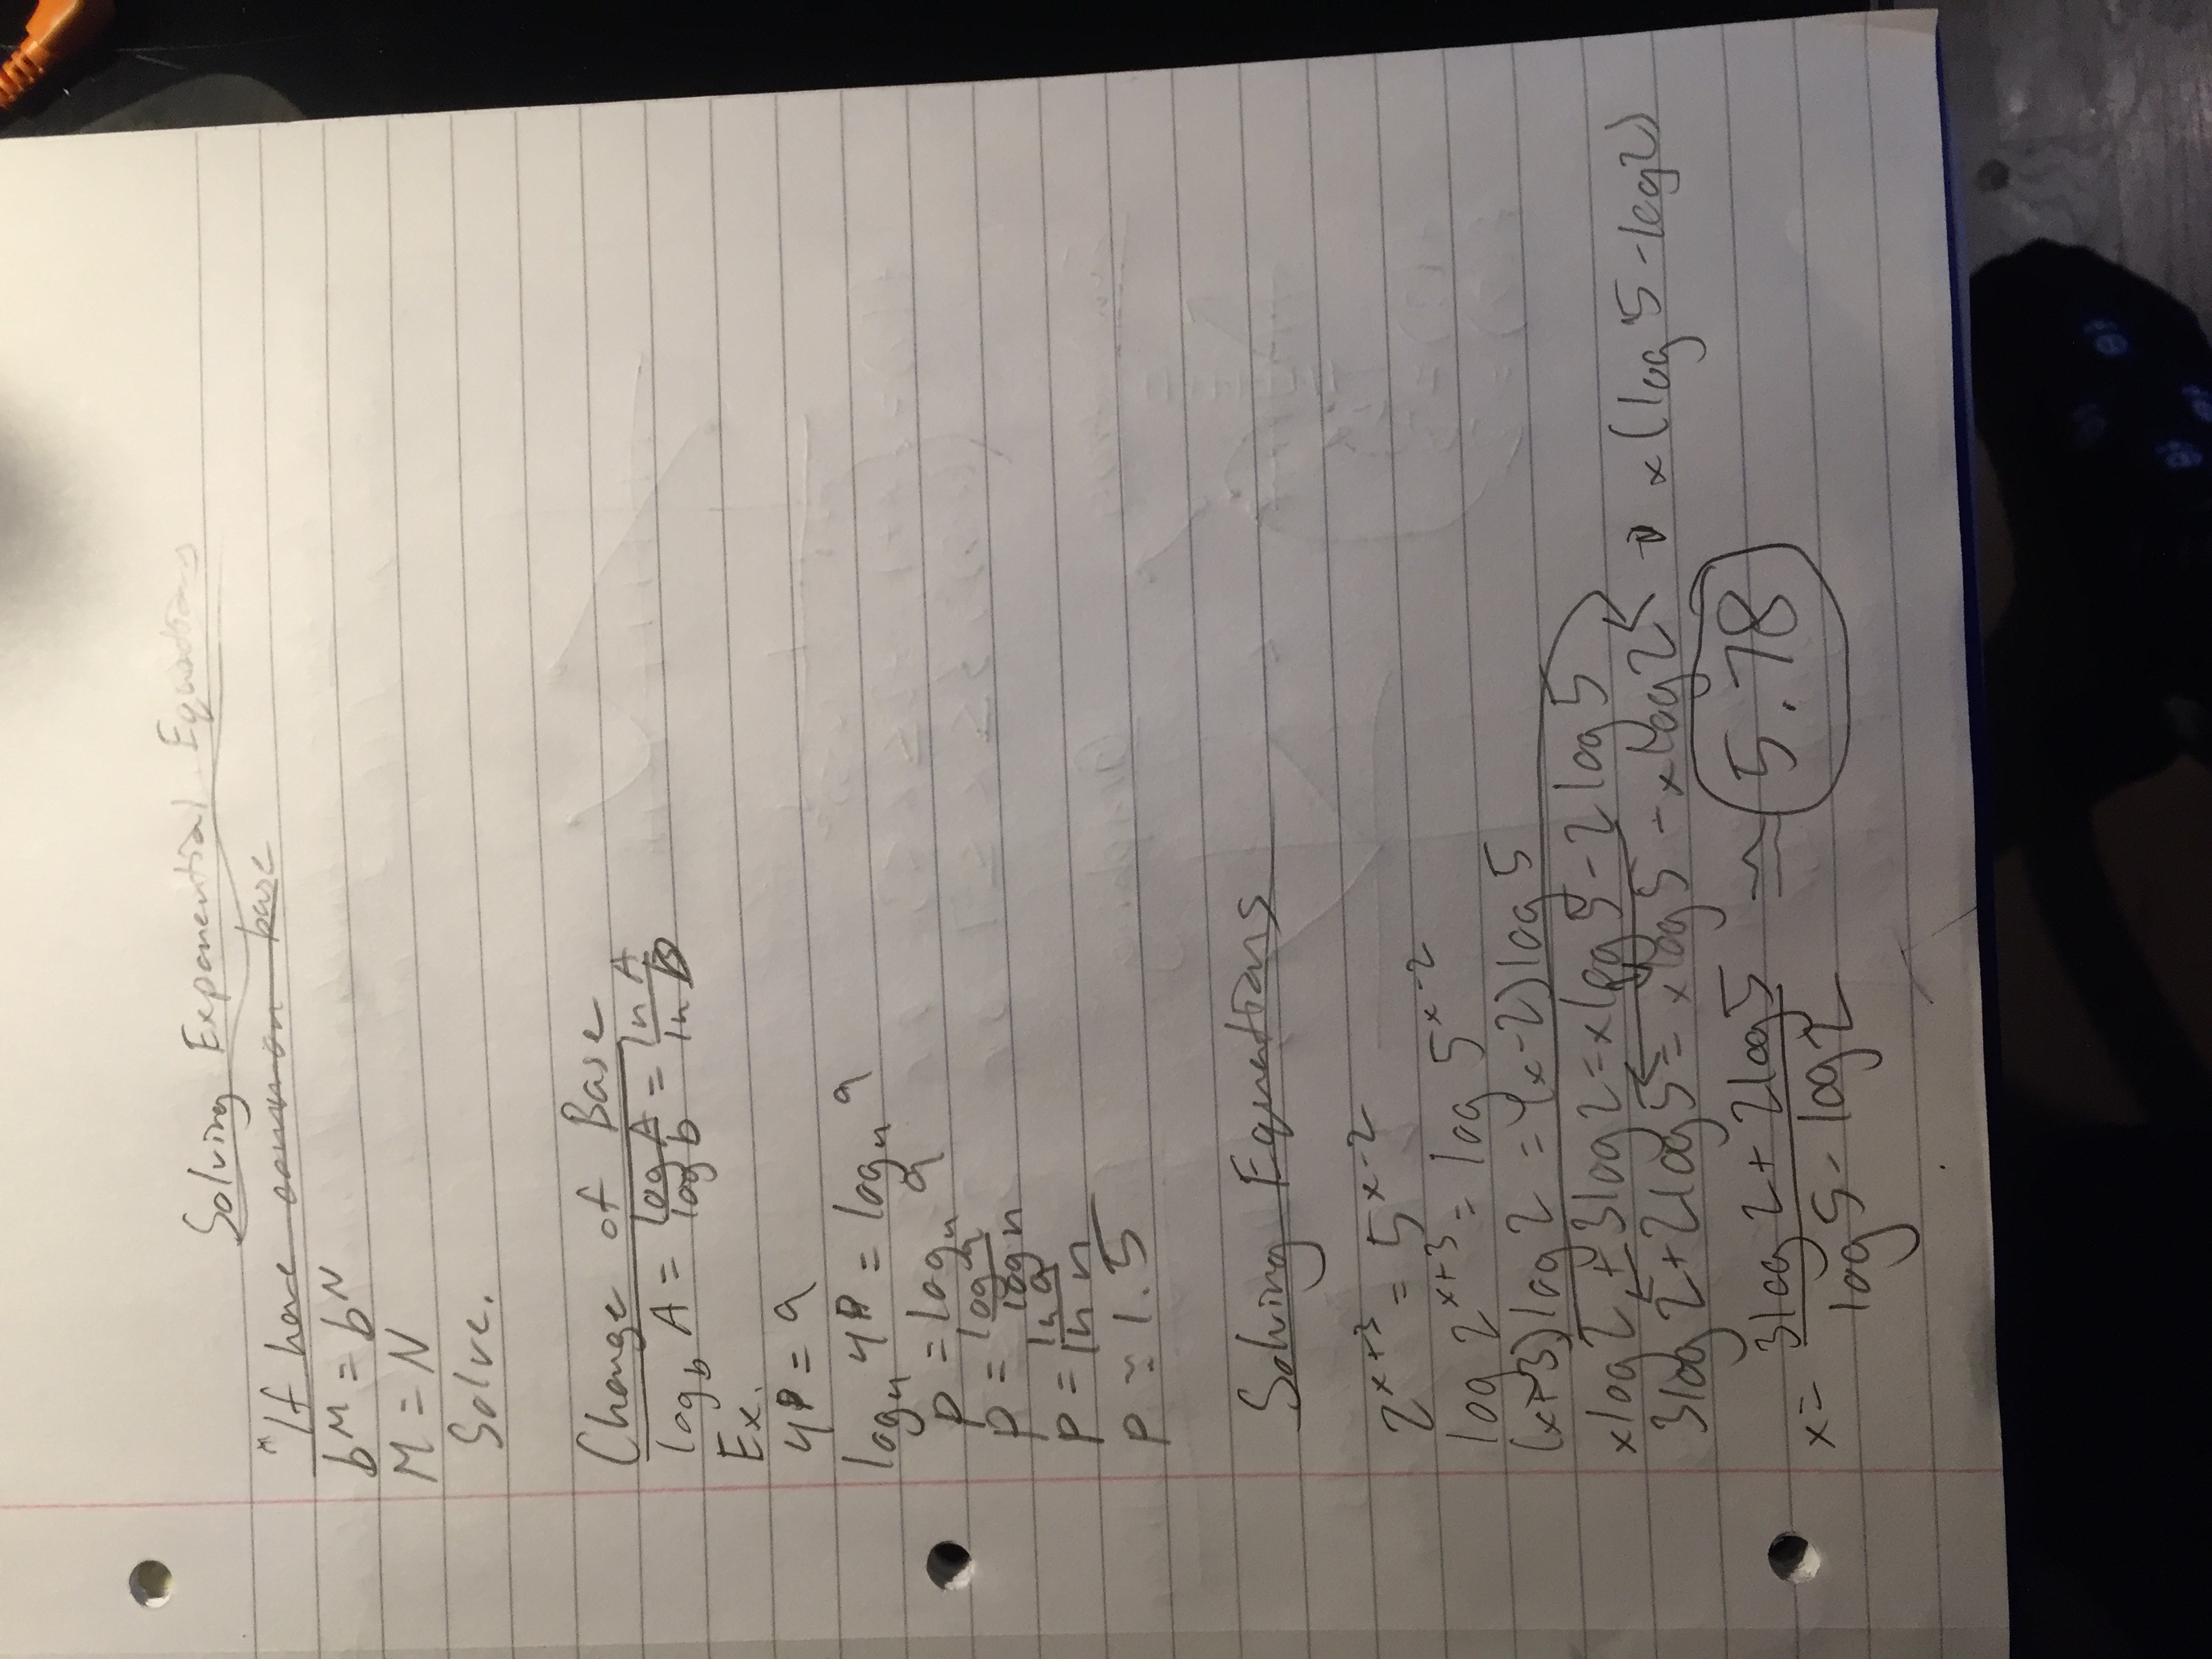 Solving Exponential Equations
*If have common base
b^M = b^N
M = N
Solve.
Change of Base
log_b A = log A / log b = ln A / ln b
Ex.
4^p = 9
log_4 4^p = log_4 9
p = log_4 9
p = log 9 / log 4
p = ln 9 / ln 4
p ≈ 1.5
Solving Equations
2^(x+3) = 5^(x-2)
log 2^(x+3) = log 5^(x-2)
(x+3) log 2 = (x-2) log 5
x log 2 + 3 log 2 = x log 5 - 2 log 5
3 log 2 + 2 log 5 = x log 5 - x log 2 → x (log 5 - log 2)
x = (3 log 2 + 2 log 5) / (log 5 - log 2) ≈ 5.78